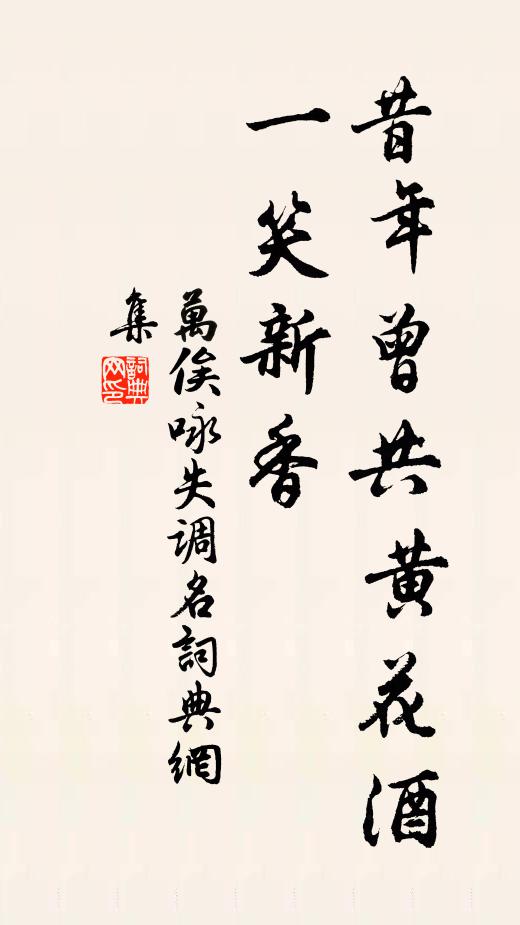 昔年曾共黄花酒
一笑新香
萬俟咏失调名詞典網
集
詞典网印